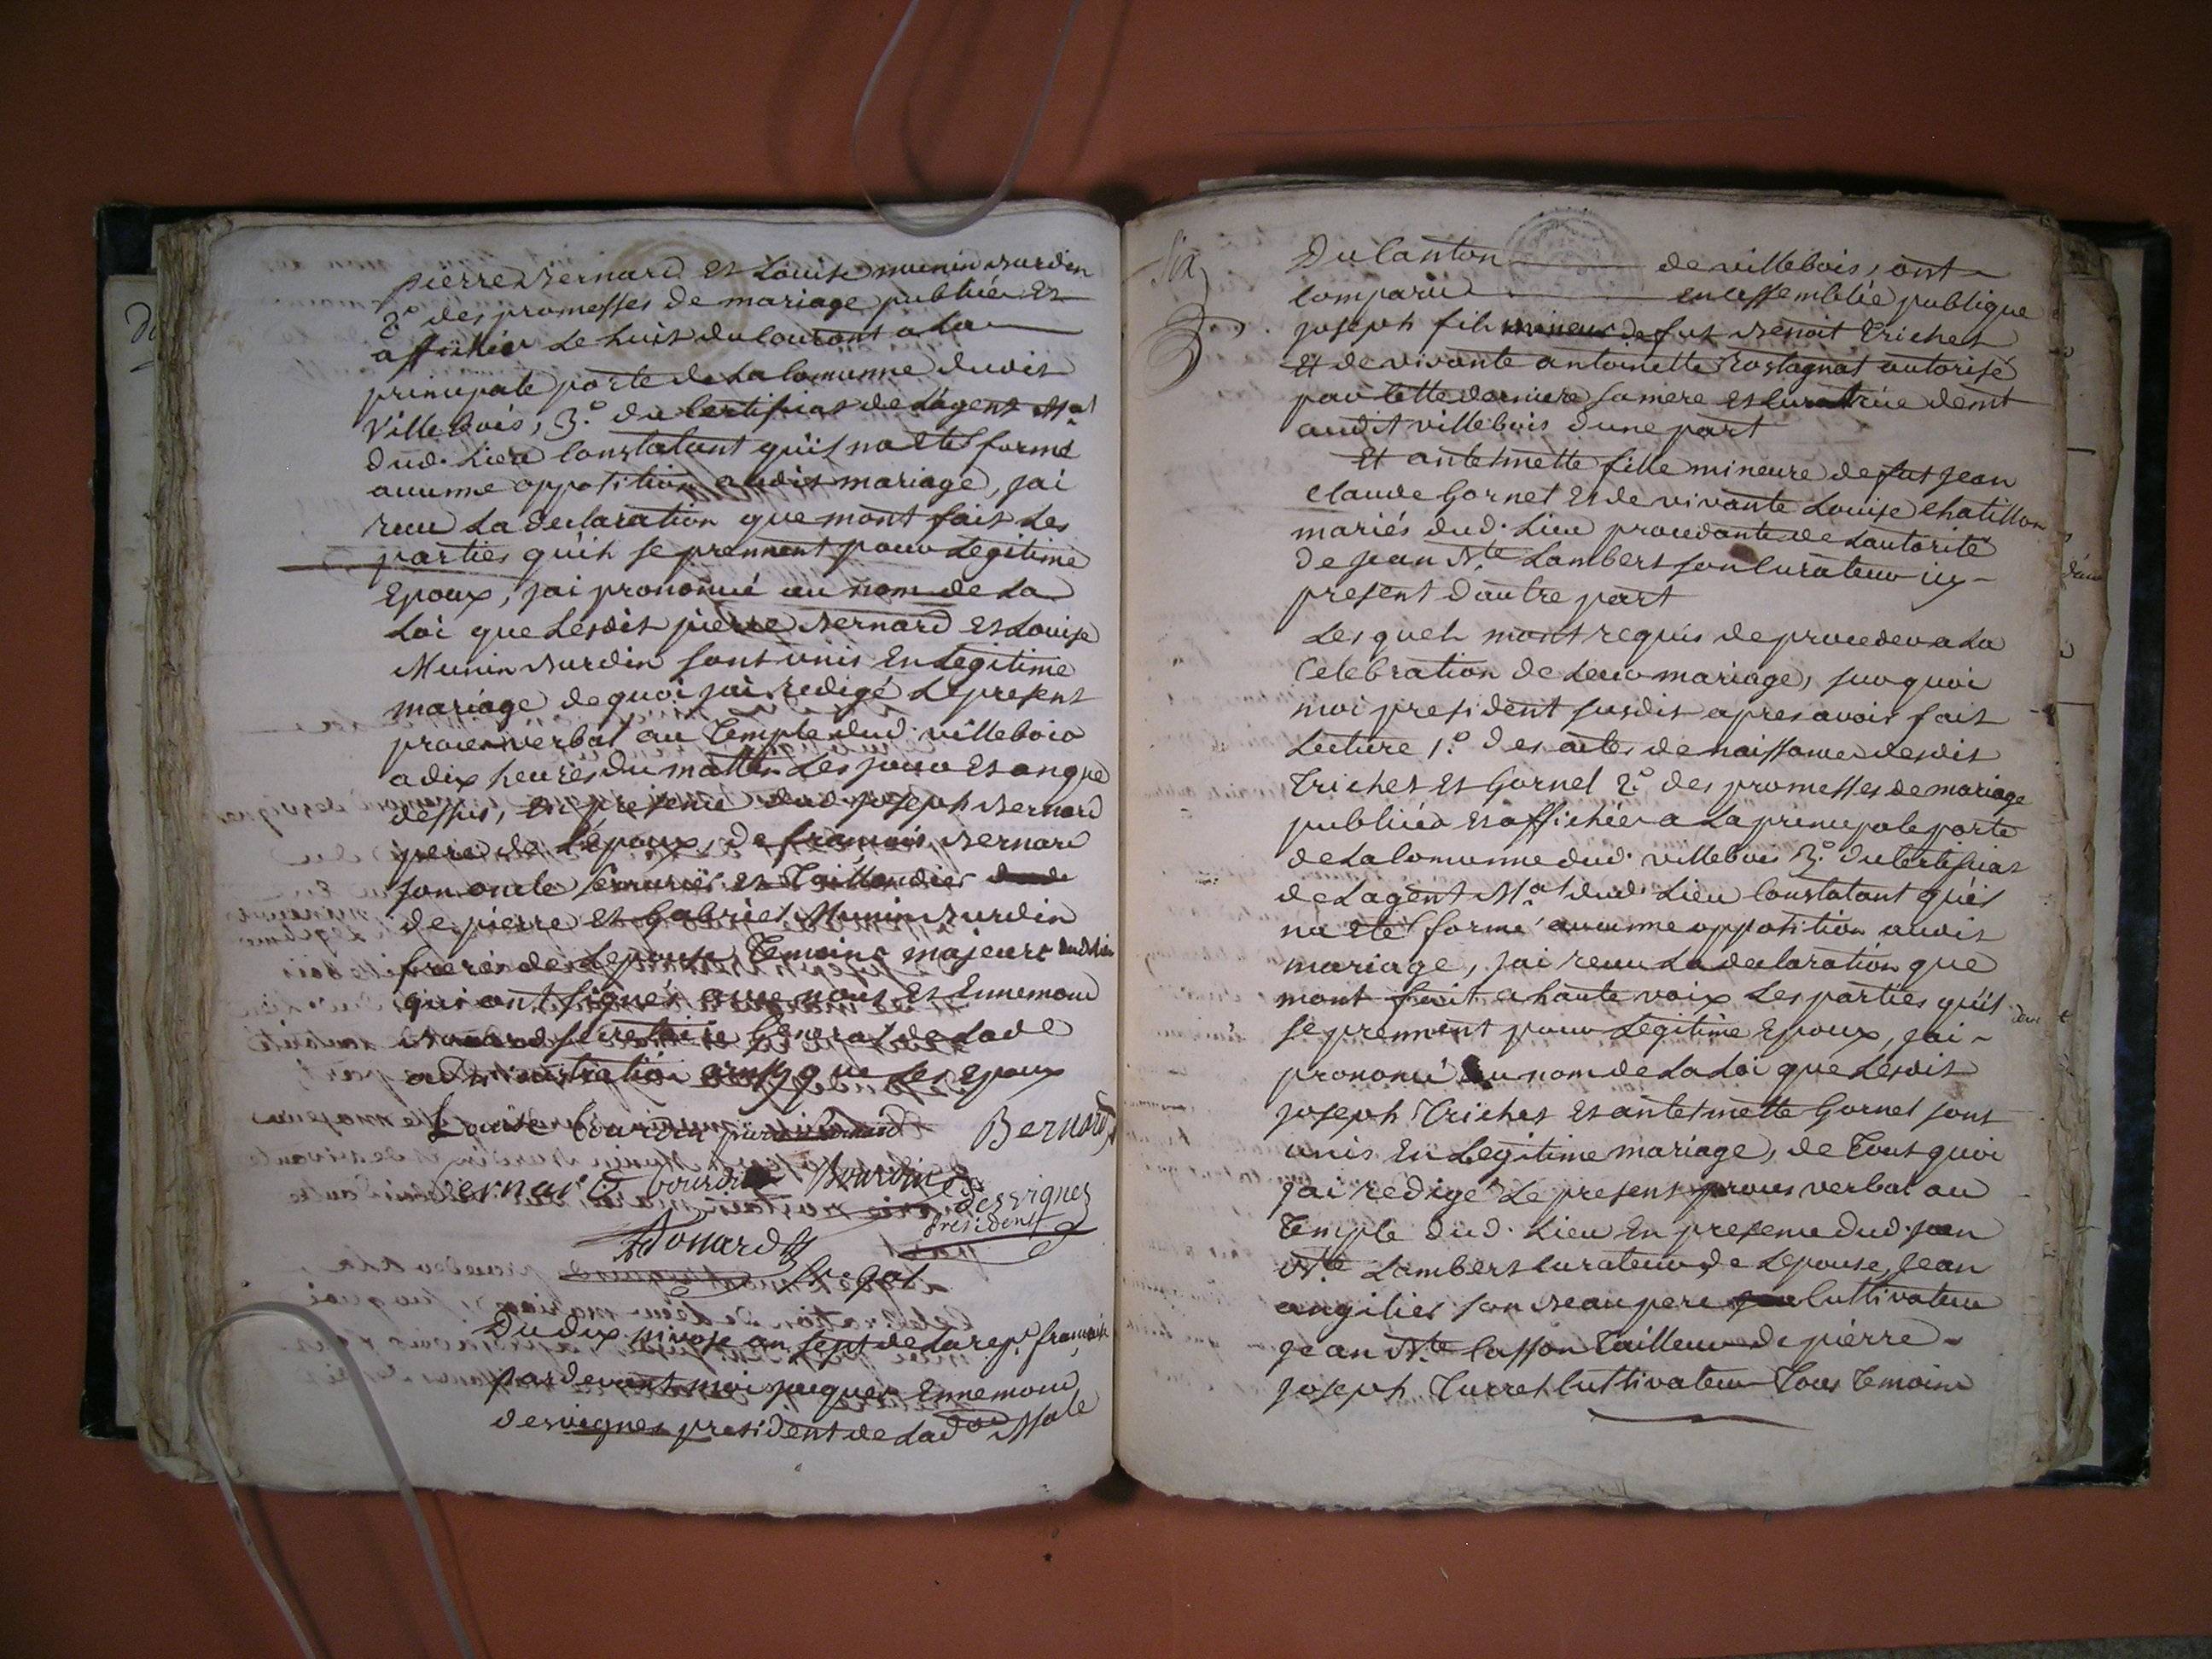 pierre Bernard et Louise munin Burdin
2.° des promesses de mariage publiées et
affichées le huit du courant a la
principale porte de la Comunne dudit
Villebois, 3.° du Certificat de l'agent N.al
dud. Lieu Constatant quil na eté formé
aucunne opposition audit mariage, jai
recu La declaration que mont fait Les
parties quils se prennent pour Legitime
Epoux, jai prononcé au nom de La
Loi que Lesdit pierre Bernard et Louise
Munin Burdin sont unis En Legitime
mariage de quoi jai redigé Le present
proces verbal au Temple dud. villebois
a dix heures du mattin Les jour et an que
dessus, En presence dud. joseph Bernard
pere de L'epoux, de francois Bernard
son oncle serrurier et Taillandier
de pierre et Gabriel Munin Burdin
freres de Lepouse, Temoins majeurs dud. lieu
qui ont signés avec nous et Ennemond
secretaire General de Lad.e
administration ainsy que Les epoux
Louise bourdin pierre Bernard Bernard
Bernard bourdin Bourdin
Desvignes
President
Du dix nivose an sept de La rep.e francaise
pardevant moi jacques Ennemond
desvignes president de Lad.on N.ale
Six
Du Canton de villebois, ont
Comparu en assemblée publique
joseph fils mineur de fut Benoit Trichet
Et de vivante antoinette Rostagnat autorisé
par cette derniere sa mere et Curatrice demt
audit villebois d'une part
Et antelmette fille mineure de fut jean
Claude Gornet et de vivante Louise Chatillon
mariés dud. Lieu procedante de Lautorité
De jean B.te Lambert son Curateur icy
present d'autre part
Lesquels mont requis de proceder a La
Celebration de Leur mariage, sur quoi
moi president susdit apres avoir fait
Lecture 1.° des actes de naissance desdit
Trichet et Gornet 2.° des promesses de mariage
publiées et affichées a La principale porte
de La Comunne dud. villebois 3.° du Certificat
de Lagent N.al dud. Lieu Constatant quil
na eté formé aucunne opposition audit
mariage, jai recu La declaration que
mont fait a haute voix Les parties quils
se prennent pour Legitime Epoux, jai
prononcé au nom de La Loi que Lesdit
joseph Trichet et antelmette Gornet sont
unis En Legitime mariage, de Tout quoi
jai redigé Le present proces verbal au
Temple dud. Lieu En presence dud. jean
B.te Lambert Curateur de Lepouse, jean
angilier son Beau pere Cultivateur
jean B.te Casson Tailleur de pierre
joseph Turret Cultivateur Tous Temoins